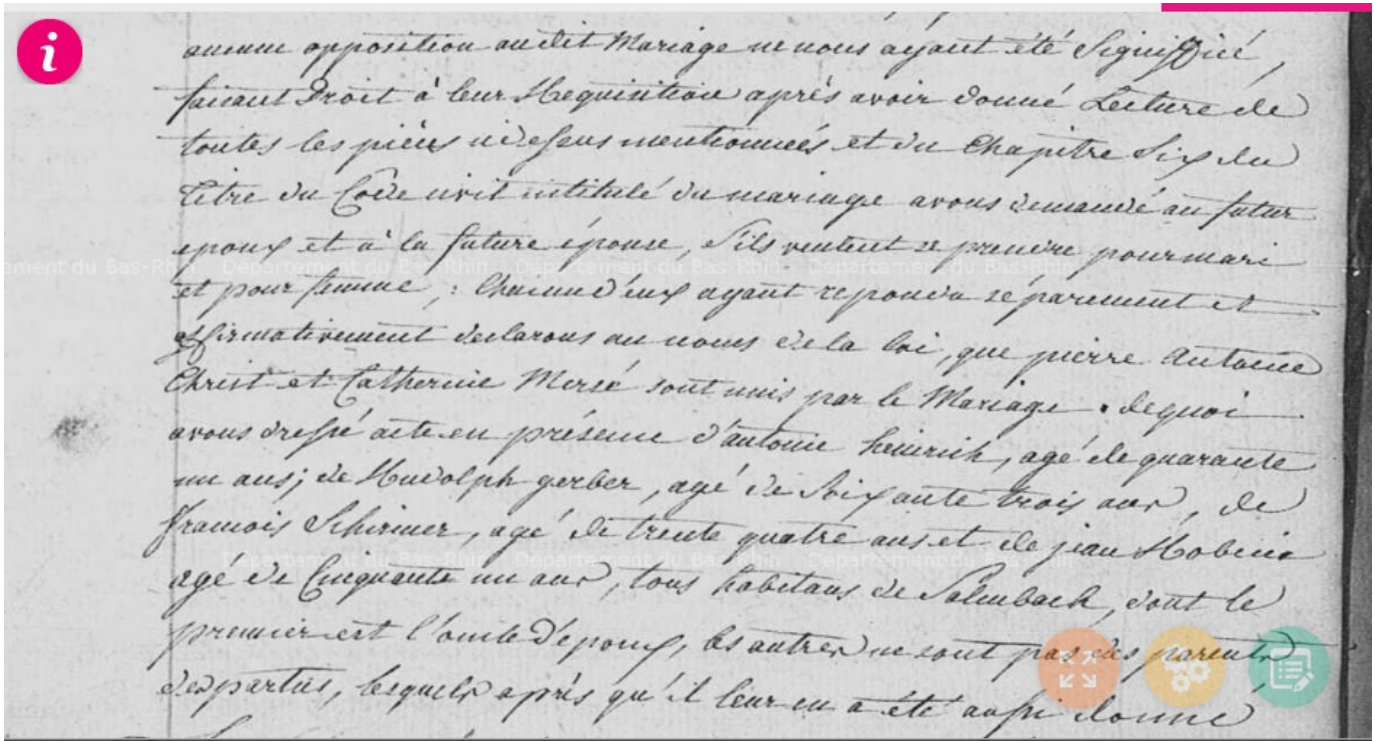 aucune opposition au dit Mariage ne nous ayant été Signiffié,
faisant Droit à leur Requisition après avoir donné Lecture de
toutes les pièces cidessus mentionnées et du Chapitre Six du
Titre du Code civil intitulé du mariage avons demandé au futur
epoux et à la future épouse, S'ils veulent se prendre pour mari
et pour femme, : Chacun d'eux ayant repondu separement et
affirmativement declarons au noms de la loi, que pierre Antoine
Christ et Catherine sont unis par le Mariage. de quoi
avons dressé acte en présence d'antoine heinrich, agé de quarante
un ans; de Rudolph gerber, agé de Soixante trois ans, de
françois Schirmer, agé de trente quatre ans et de jean
agé de Cinquante un ans, tous habitans de Salmbach, dont le
premier est l'oncle d'epoux, les autres ne sont pas des parents
des parties, lesquels après qu'il leur en a été aussi donné
Departement du Bas-Rhin